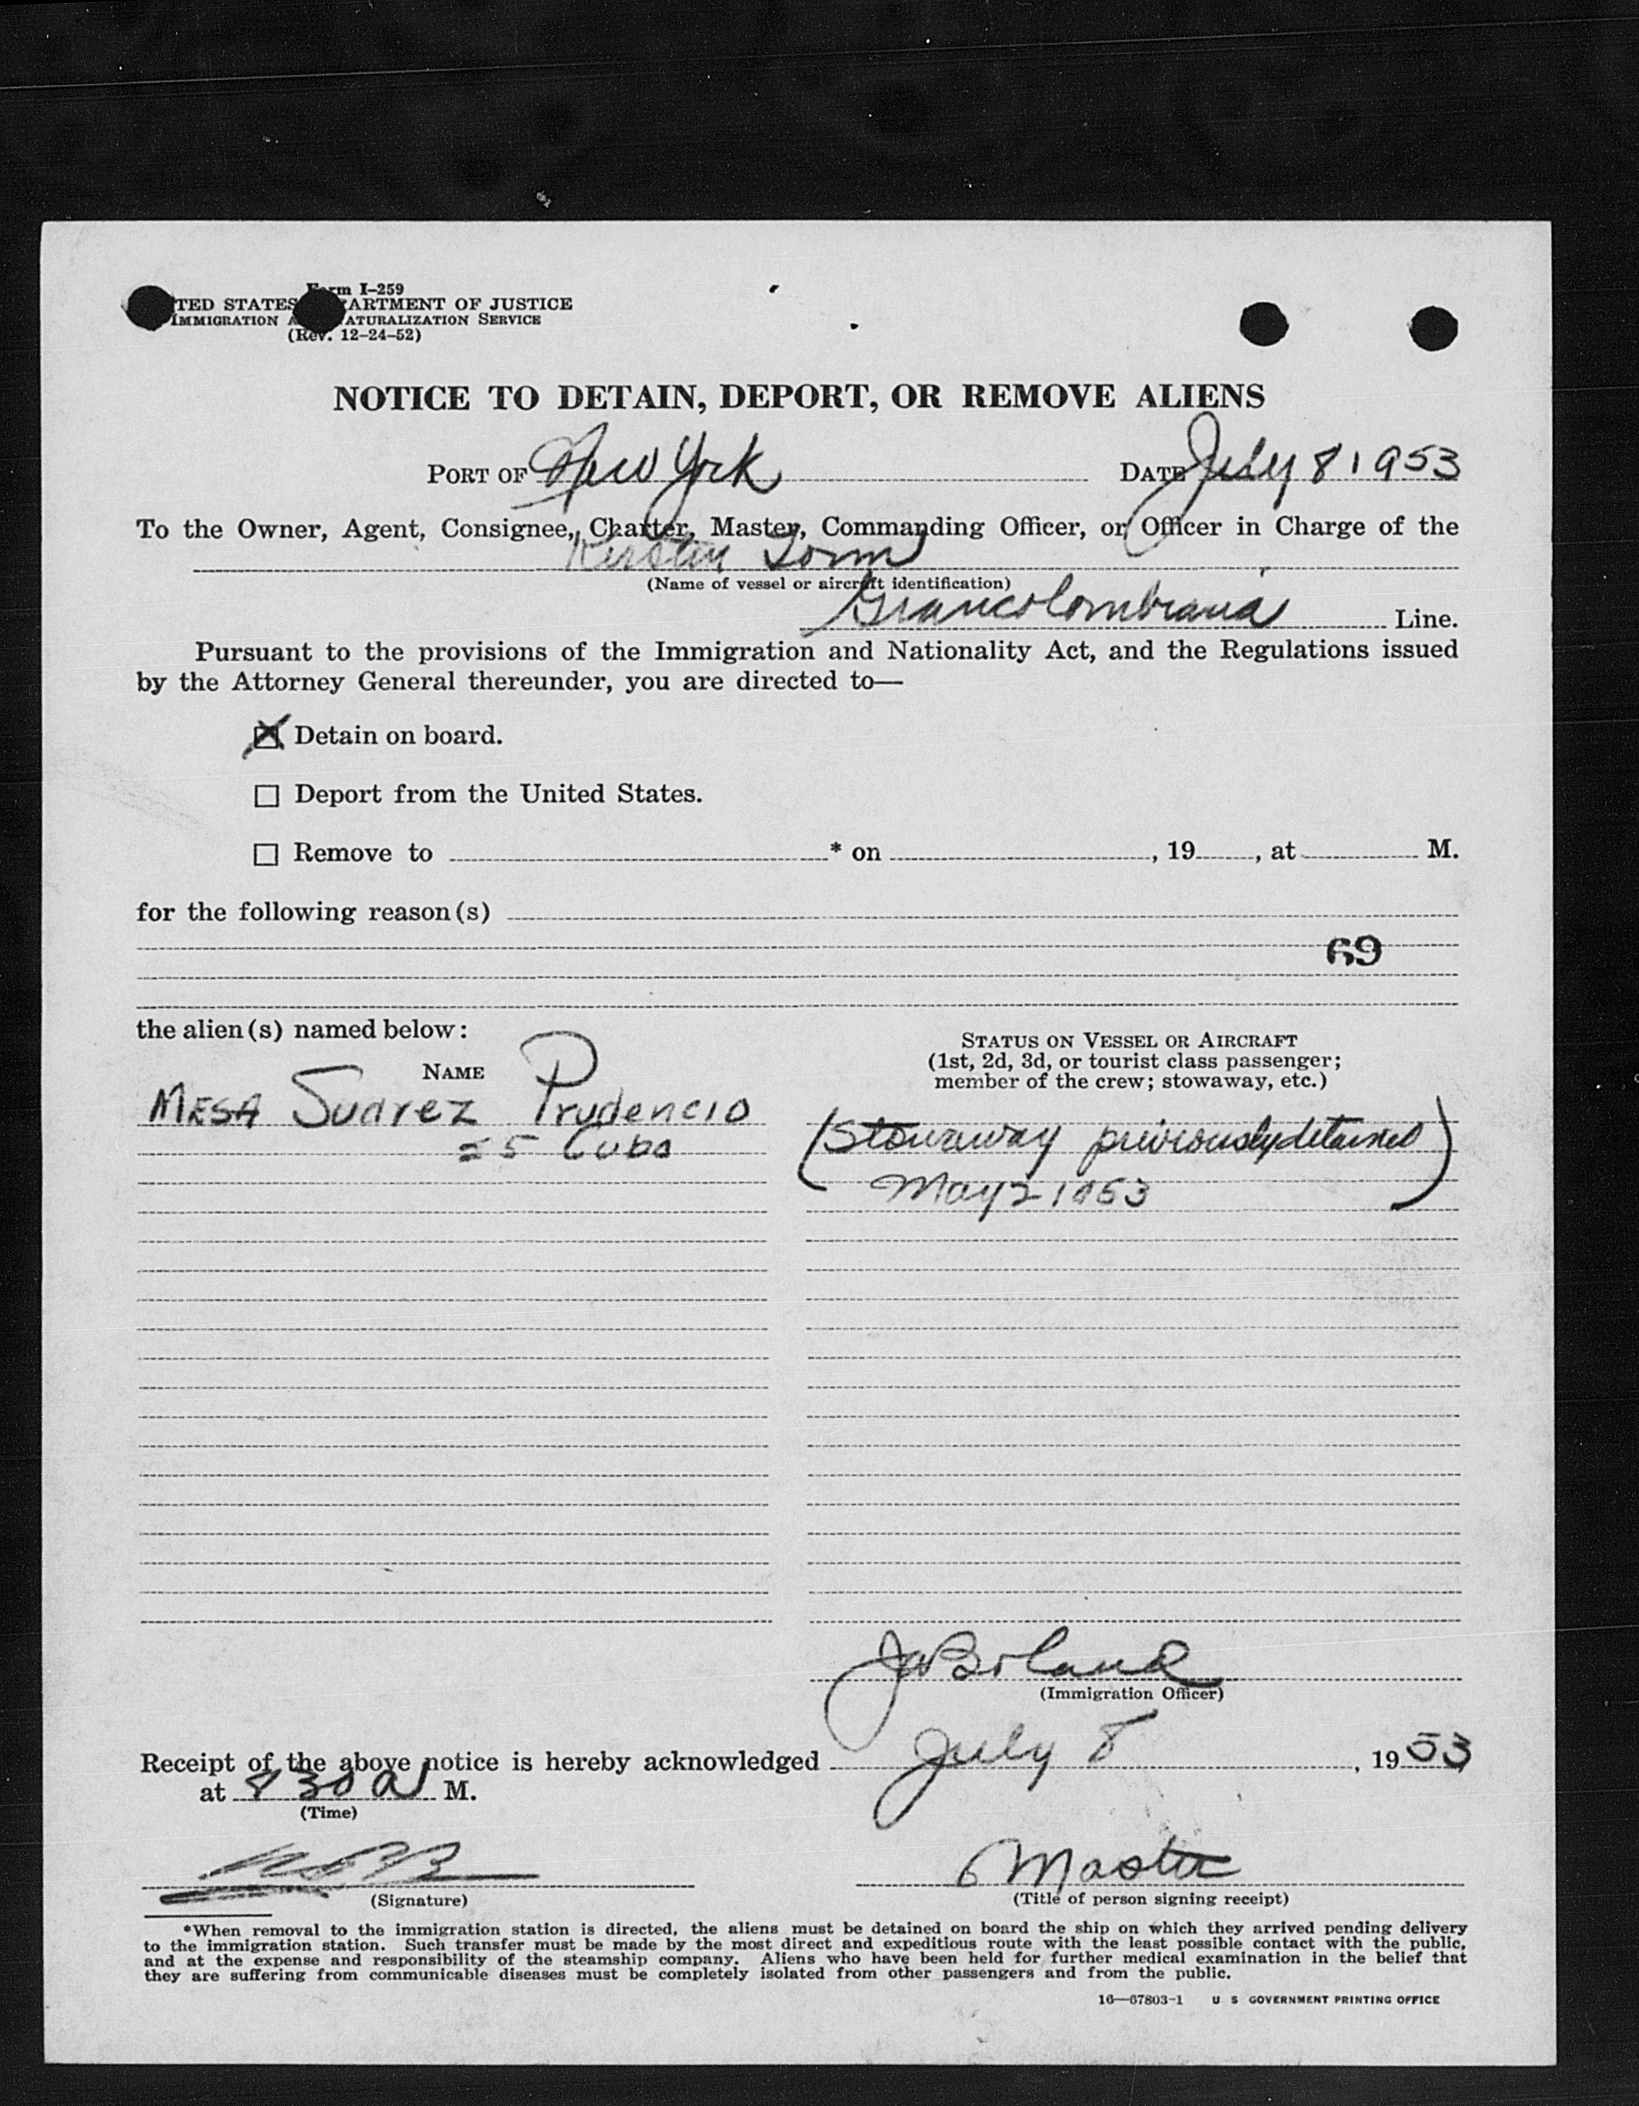 Form I-259
UNITED STATES DEPARTMENT OF JUSTICE
IMMIGRATION AND NATURALIZATION SERVICE
(Rev. 12-24-52)
NOTICE TO DETAIN, DEPORT, OR REMOVE ALIENS
PORT OF New York DATE July 8 1953
To the Owner, Agent, Consignee, Charter, Master, Commanding Officer, or Officer in Charge of the
Kirsten Torm
(Name of vessel or aircraft identification)
Grancolombiana Line.
Pursuant to the provisions of the Immigration and Nationality Act, and the Regulations issued
by the Attorney General thereunder, you are directed to—
☒ Detain on board.
☐ Deport from the United States.
☐ Remove to * on , 19 , at M.
for the following reason(s)
69
the alien(s) named below:
NAME
STATUS ON VESSEL OR AIRCRAFT
(1st, 2d, 3d, or tourist class passenger;
member of the crew; stowaway, etc.)
MESA Suarez Prudencio (Stowaway previously detained
Cuba May 2 1953)
(Immigration Officer)
Receipt of the above notice is hereby acknowledged July 8, 1953
at 830 A M.
(Time)
Master
(Signature) (Title of person signing receipt)
*When removal to the immigration station is directed, the aliens must be detained on board the ship on which they arrived pending delivery
to the immigration station. Such transfer must be made by the most direct and expeditious route with the least possible contact with the public,
and at the expense and responsibility of the steamship company. Aliens who have been held for further medical examination in the belief that
they are suffering from communicable diseases must be completely isolated from other passengers and from the public.
16—67803-1 U S GOVERNMENT PRINTING OFFICE